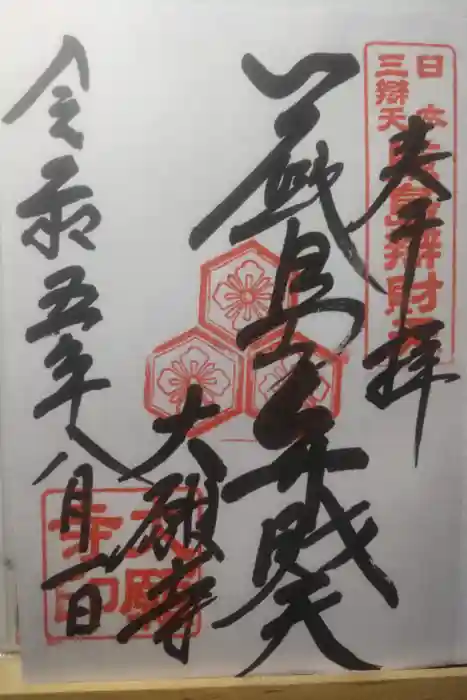 奉拝
日本
三辯天
島辯財天
厳島弁財天
大願寺
大願寺印
令和五年八月一日